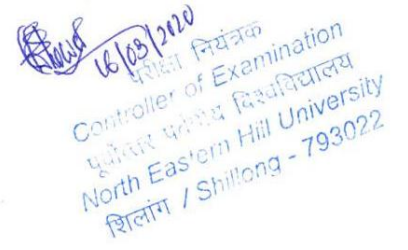 16/03/2020
परीक्षा नियंत्रक
Controller of Examination
पूर्वोत्तर पर्वतीय विश्वविद्यालय
North Eastern Hill University
शिलांग / Shillong - 793022